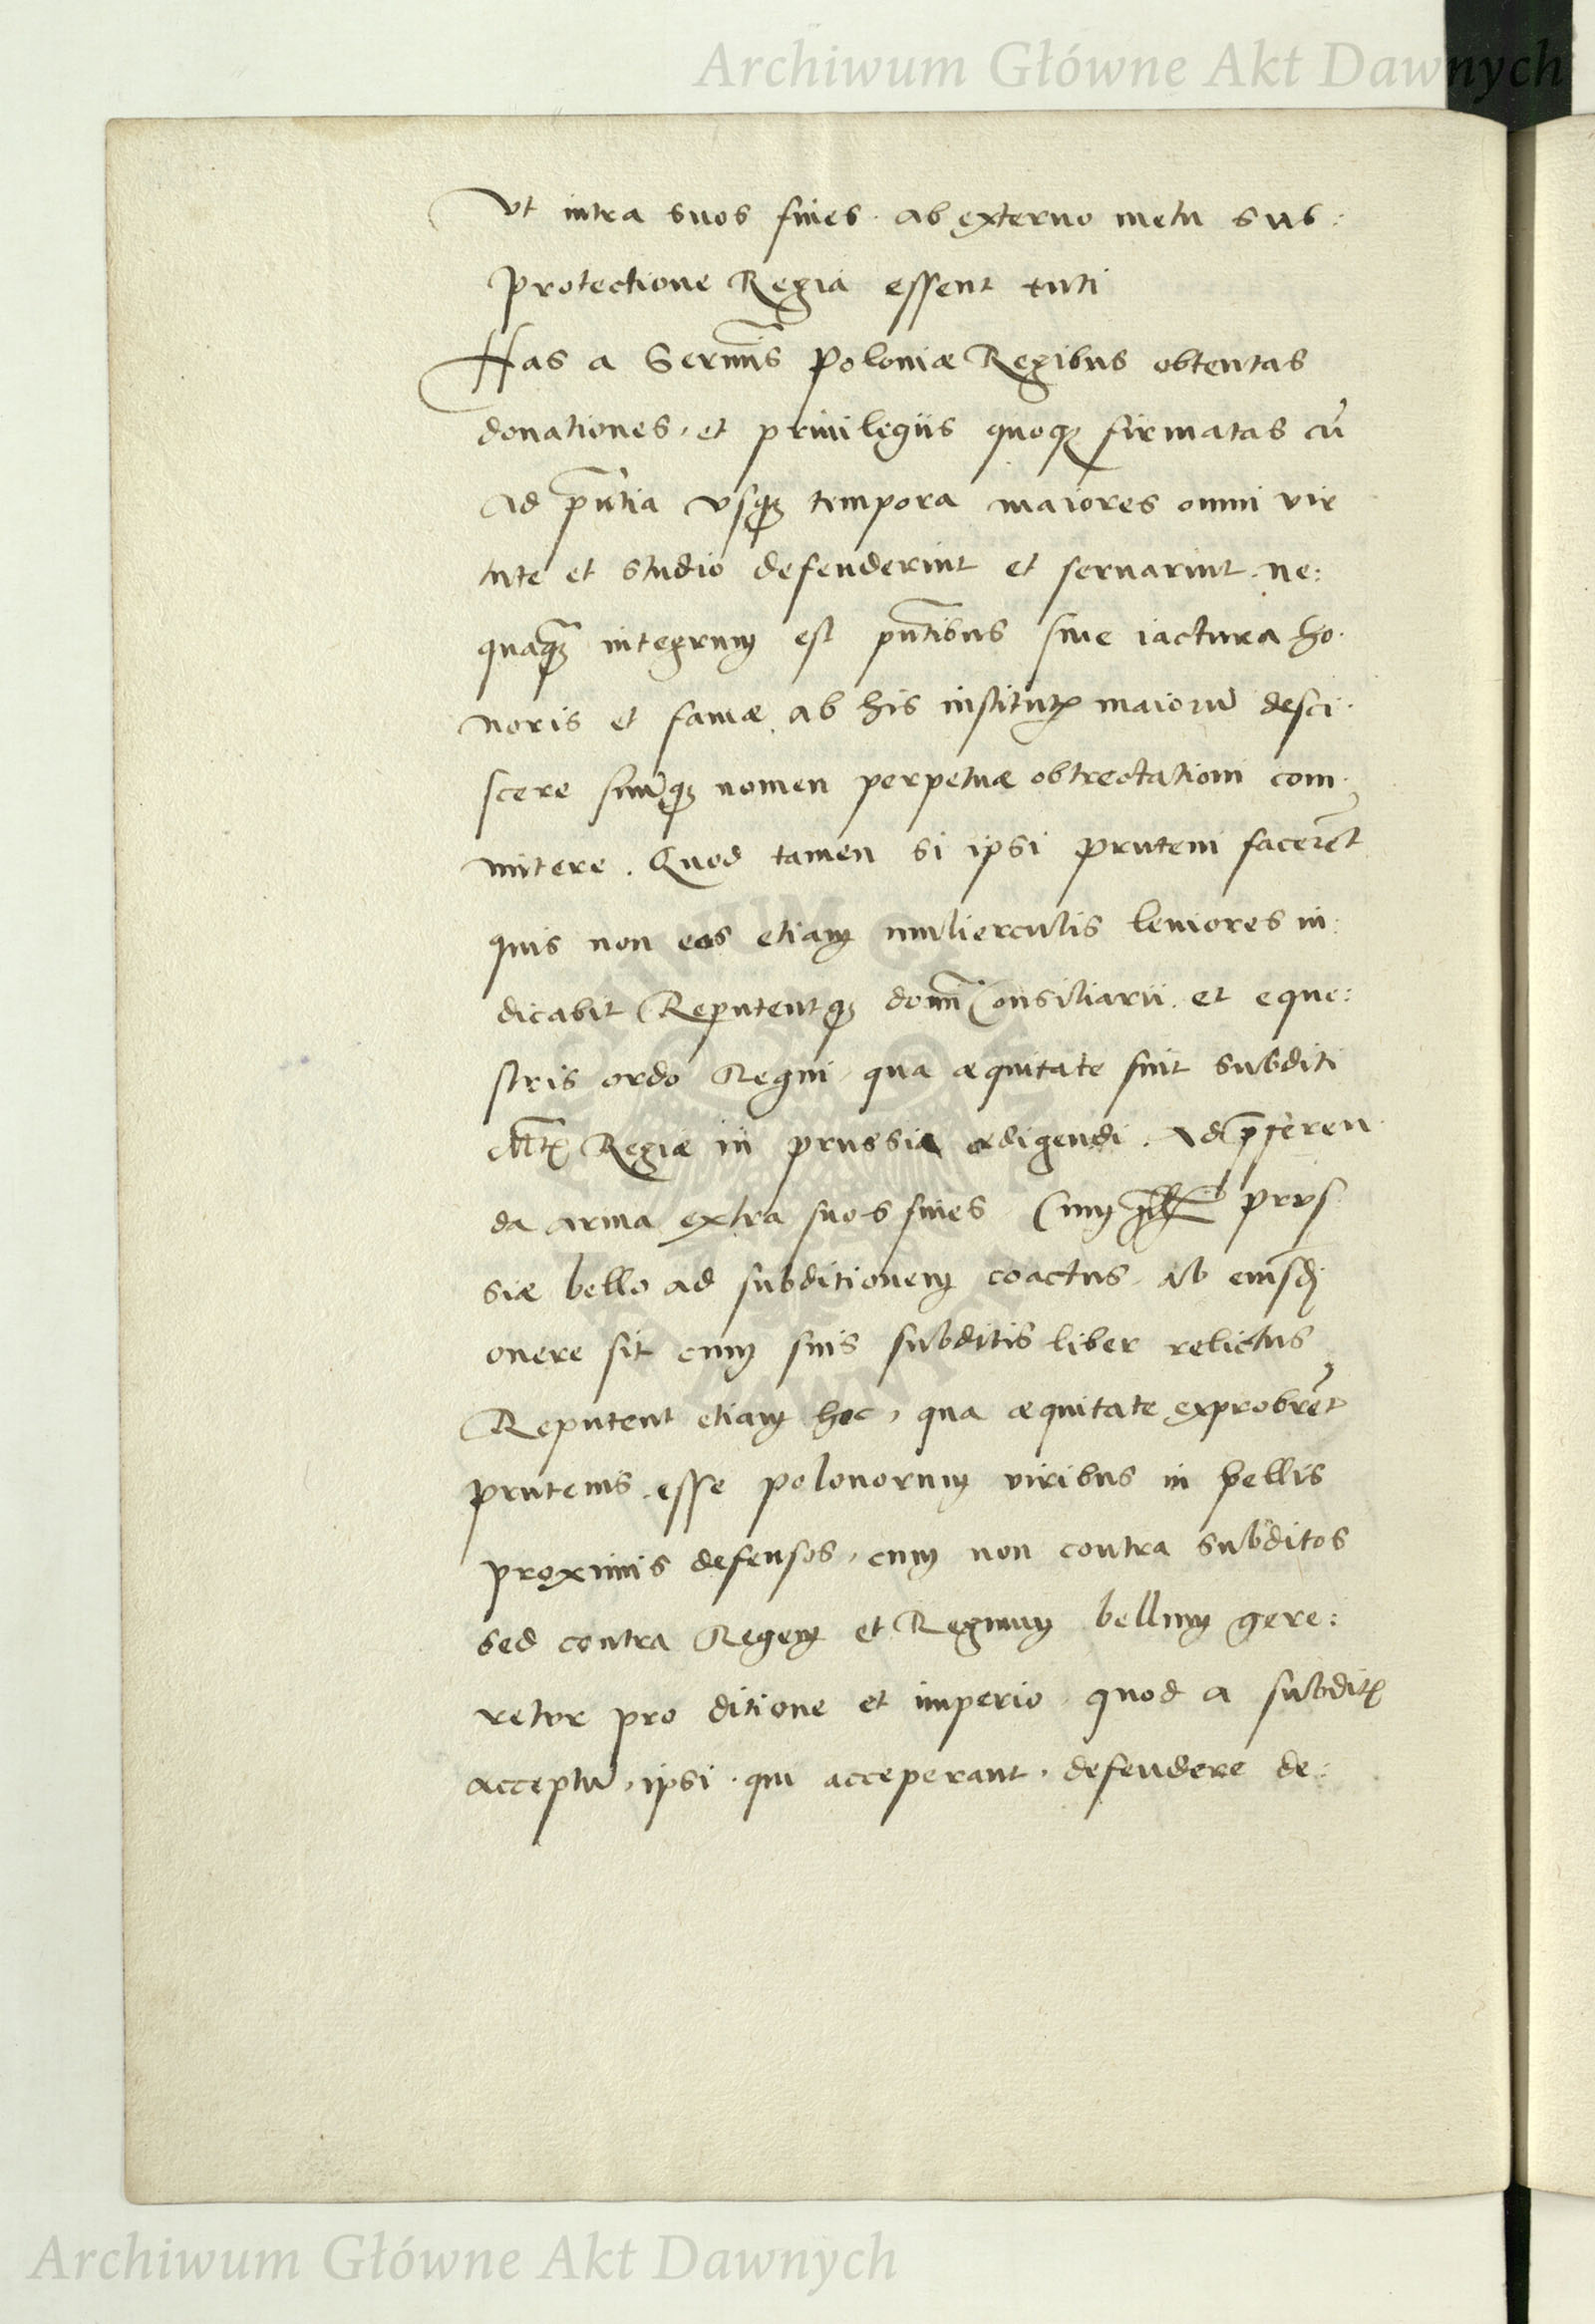 Archiwum Główne Akt Dawnych
Vt intra suos fines. ab externo metu sub:
protectione Regia essent tuti
Has a Sermīs Poloniæ Regibus obtentas
donationes, et priuilegiis quoqȝ firmatas cū
ad pn̄tia vsqȝ tempora maiores omni vir
tute et studio defenderint et seruarint. ne:
quaqȝ integrum est pn̄tibus sine iactura ho.
noris et famæ, ab his institutꝭ maiorū desci.
scere suūqȝ nomen perpetuæ obtrectationi com.
mitere. Quod tamen si ipsi pruteni facerēt
quis non eos etiam mulierculis leuiores iu:
dicabit Reputentqȝ domī Consiliarii. et eque:
stris ordo Regni, qua æquitate sint subditi
Mtꝭ Regiæ in prussia adigendi. Ad p̄feren
da arma extra suos fines Cum prus
siæ bello ad subditionem coactus, ab eiusdē
onere sit cum suis subditis liber relictus
Reputent etiam hoc, qua æquitate exprobrēt
prutenis. esse polonorum viribus in bellis
proximis defensos, cum non contra subditos
sed contra Regem et Regnum bellum gere:
retur pro ditione et imperio, quod a subditꝭ
acceptū, ipsi. qui acceperant. defendere de:
Archiwum Główne Akt Dawnych